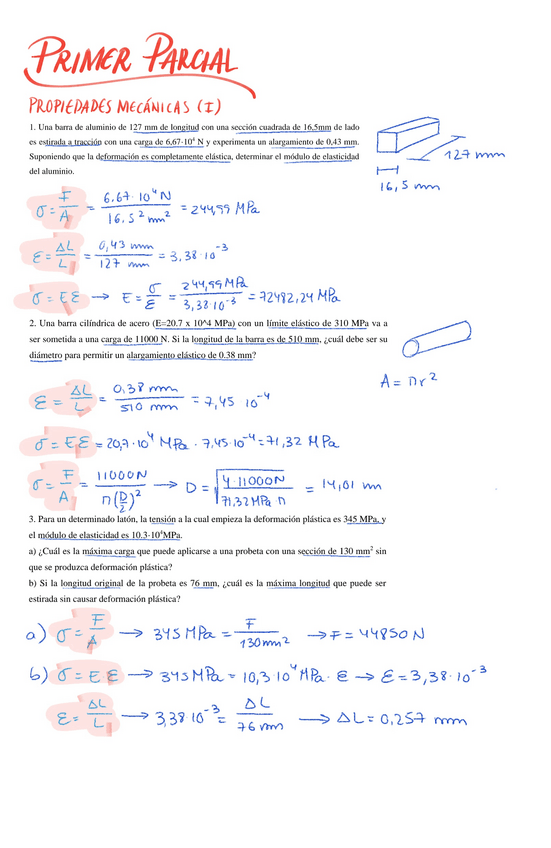 PRIMER PARCIAL
PROPIEDADES MECÁNICAS (I)
1. Una barra de aluminio de 127 mm de longitud con una sección cuadrada de 16,5mm de lado
es estirada a tracción con una carga de 6,67·10⁴ N y experimenta un alargamiento de 0,43 mm.
Suponiendo que la deformación es completamente elástica, determinar el módulo de elasticidad
del aluminio.
127 mm
16,5 mm
σ = F/A = 6,67·10⁴ N / 16,5² mm² = 244,99 MPa
ε = ΔL/L = 0,43 mm / 127 mm = 3,38·10⁻³
σ = Eε → E = σ/ε = 244,99 MPa / 3,38·10⁻³ = 72482,24 MPa
2. Una barra cilíndrica de acero (E=20.7 x 10^4 MPa) con un límite elástico de 310 MPa va a
ser sometida a una carga de 11000 N. Si la longitud de la barra es de 510 mm, ¿cuál debe ser su
diámetro para permitir un alargamiento elástico de 0.38 mm?
A = πr²
ε = ΔL/L = 0,38 mm / 510 mm = 7,45 10⁻⁴
σ = Eε = 20,7·10⁴ MPa · 7,45·10⁻⁴ = 71,32 MPa
σ = F/A = 11000N / π(D/2)² → D = √(4·11000N / 71,32MPa·π) = 14,01 mm
3. Para un determinado latón, la tensión a la cual empieza la deformación plástica es 345 MPa, y
el módulo de elasticidad es 10.3·10⁴MPa.
a) ¿Cuál es la máxima carga que puede aplicarse a una probeta con una sección de 130 mm² sin
que se produzca deformación plástica?
b) Si la longitud original de la probeta es 76 mm, ¿cuál es la máxima longitud que puede ser
estirada sin causar deformación plástica?
a) σ = F/A → 345 MPa = F / 130mm² → F = 44850 N
b) σ = Eε → 345 MPa = 10,3·10⁴ MPa · ε → ε = 3,38·10⁻³
ε = ΔL/L → 3,38·10⁻³ = ΔL / 76 mm → ΔL = 0,257 mm